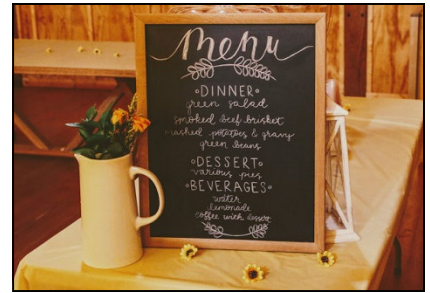 Menu
•DINNER•
green salad
smoked beef brisket
mashed potatoes & gravy
green beans
•DESSERT•
various pies
•BEVERAGES•
water
lemonade
coffee with dessert